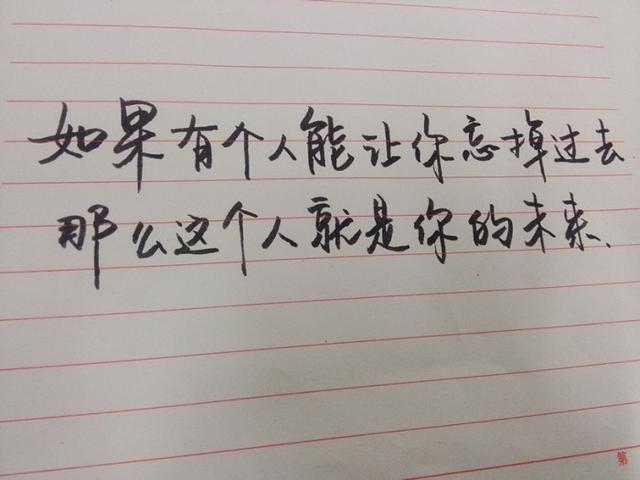 如果有个人能让你忘掉过去
那么这个人就是你的未来、
第